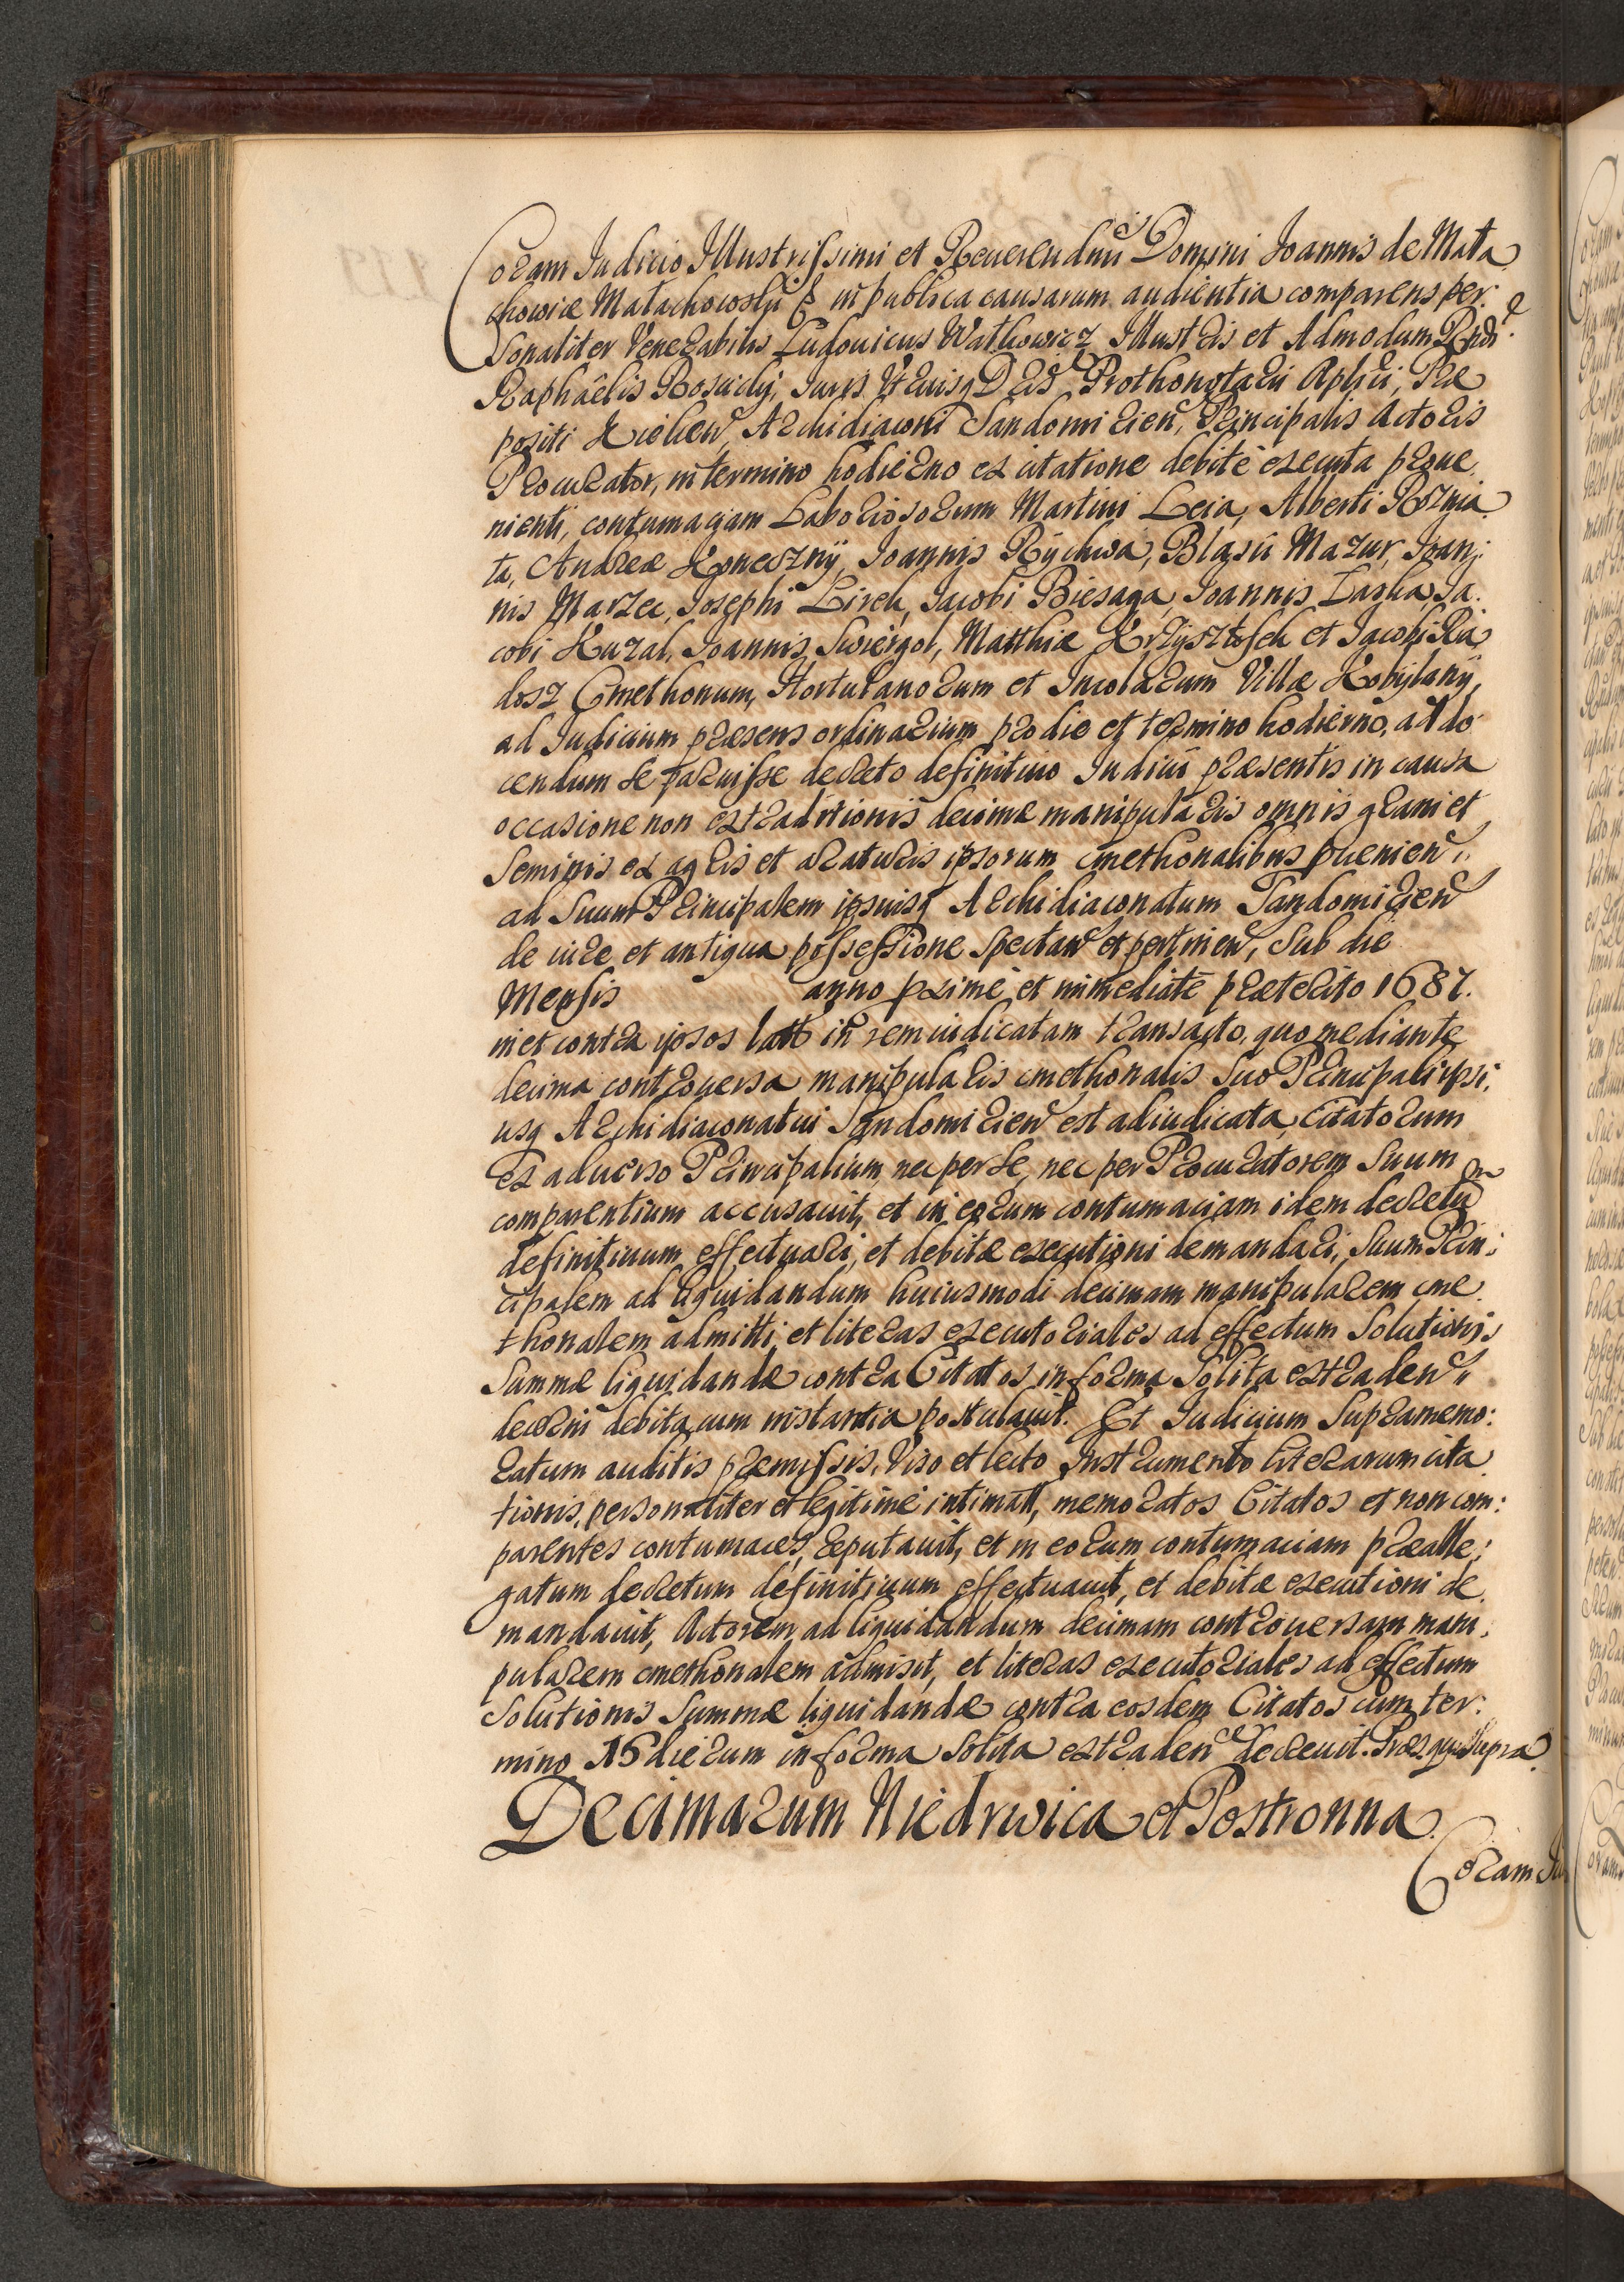 Coram Judicio Illustrissimi et Reuerendmi Domini Joannis de Mała
chowice Małachowski &c in publica causarum audientia comparens per:
sonaliter Venerabilis Ludouicus Wathowicz Illustris et Admodum Rndi
Raphaëlis Iuris Vtriusq Dris Prothonotarii Aplici, Præ
positi Kielcen, Archidiaconi Sandomirien, Principalis Actoris
Procurator, in termino hodierno ex citatione debitè executa proue
nienti, contumaciam Laboriosorum Martini Leia, Alberti Roznia
ta, Andreæ Koneszny, Joannis Rychwa, Blasii Mazur, Joan:
nis Marzec, Josephi Lirek, Jacobi Biesaga, Joannis Laska, Ja:
cobi Kuzal, Joannis Swiergol, Matthiæ Krzysztofek et Jacobi Ra
dosz Cmethonum, Hortulanorum et Incolarum Villæ Kobylany,
ad Iudicium præsens ordinarium pro die et termino hodierno, ad do
cendum se paruisse decreto definitiuo Iudicii præsentis in causa
occasione non extraditionis decimæ manipularis omnis grani et
seminis ex agris et araturis ipsorum cmethonalibus puenien"
ad suum Principalem ipsiusq Archidiaconatum Sandomirien
de iure et antiqua possessione spectan et pertinen, sub die
Mensis anno primè et immediatè præterito 1687.
in et contra ipsos latt in rem iudicatam transacto, quo mediante
decima controuersa manipularis cmethonalis suo Principali ipsi:
usq Archidiaconatui Sandomirien est adiudicata, Citatorum
ex aduerso Principalium, nec per se, nec per Procuratorem suum
comparentium accusauit, et in eorum contumaciam idem decretum
definitiuum effectuari, et debitæ executioni demandari, suum Prin:
cipalem ad liquidandum huiusmodi decimam manipularem cme
thonalem admitti, et literas executoriales ad effectum solutionis
summæ liquidandæ contra Citatos in forma solita extraden"
decerni debita cum instantia postulauit. Et Iudicium supramemo:
ratum auditis præmissis, viso et lecto Instrumento literarum cita
tionis, personaliter et legitimè intimatt, memoratos Citatos et non com:
parentes contumaces reputauit, et in eorum contumaciam præalle:
gatum decretum definitiuum effectuauit, et debitæ executioni de
mandauit, Actorem ad liquidandum decimam controuersam mani:
pularem cmethonalem admisit, et literas executoriales ad effectum
solutionis summæ liquidandæ contra eosdem Citatos cum ter:
mino 15 dierum in forma solita extraden decreuit. Præs. qui supra
Decimarum Niedrwica et Postronna.
Coram Iu